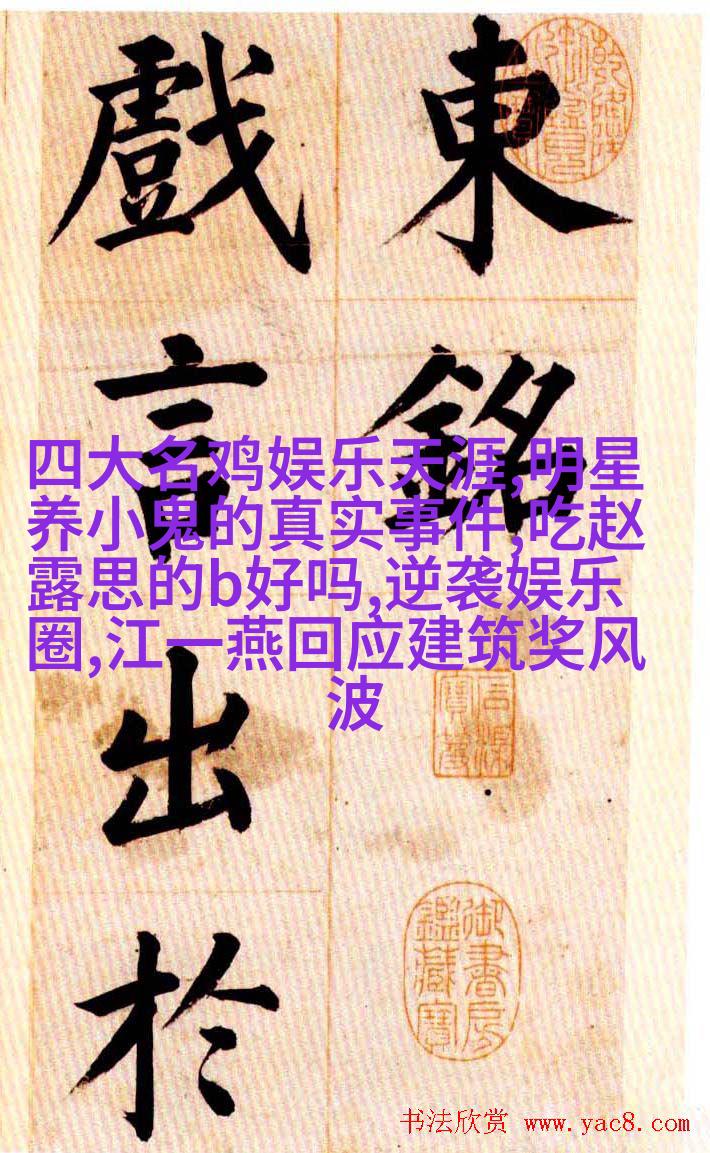 東銘
戲言出於
四大名鸡娱乐天涯,明星
养小鬼的真实事件,吃赵
露思的b好吗,逆袭娱乐
圈,江一燕回应建筑奖风
波
御書房
鑑藏寶
书法欣赏 www.yac8.com